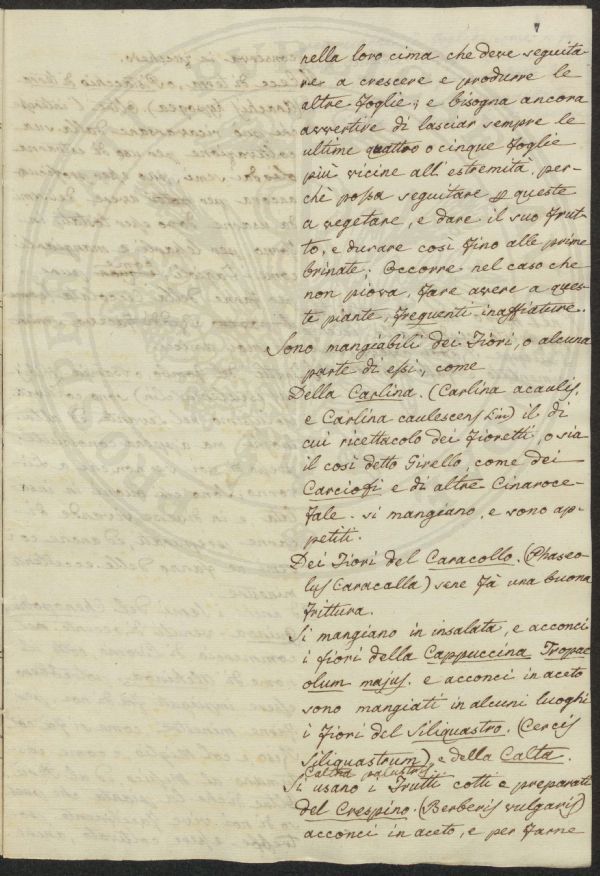 7
nella loro cima che deve seguita-
re a crescere e produrre le
altre foglie; e bisogna ancora
avvertire di lasciar sempre le
ultime quattro o cinque foglie
più vicine all' estremità, per-
chè possa seguitare queste
a vegetare, e dare il suo frut-
to, e durare così fino alle prime
brinate; Occorre nel caso che
non piova, fare avere a ques-
te piante, frequenti inaffiature.
Sono mangiabili dei Fiori, o alcuna
parte di essi, come
Della Carlina. (Carlina acaulis,
e Carlina caulescens Lin) il di
cui ricettacolo dei fioretti, o sia
il così detto Girello, come dei
Carciofi e di altre Cinaroce-
fale. si mangiano, e sono ap-
petiti.
Dei Fiori del Caracollo. (Phaseo-
lus Caracalla) sene fà una buona
frittura.
Si mangiano in insalata, e acconci
i fiori della Cappuccina Tropae
olum majus. e acconci in aceto
sono mangiati in alcuni luoghi
i fiori del Siliquastro. (Cercis
Siliquastrum), e della Calta.
Caltha palustris.
Si usano i Frutti cotti e preparati
del Crespino. (Berberis vulgaris)
acconci in aceto, e per farne